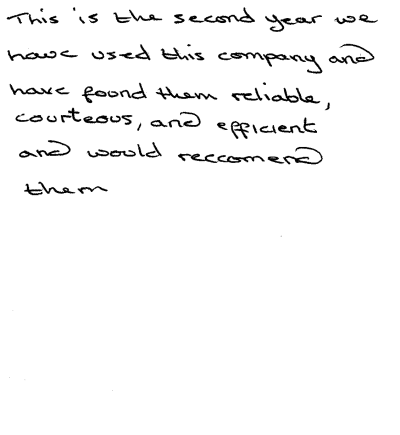 This is the second year we
have used this company and
have found them reliable,
courteous, and efficient
and would reccomend
them